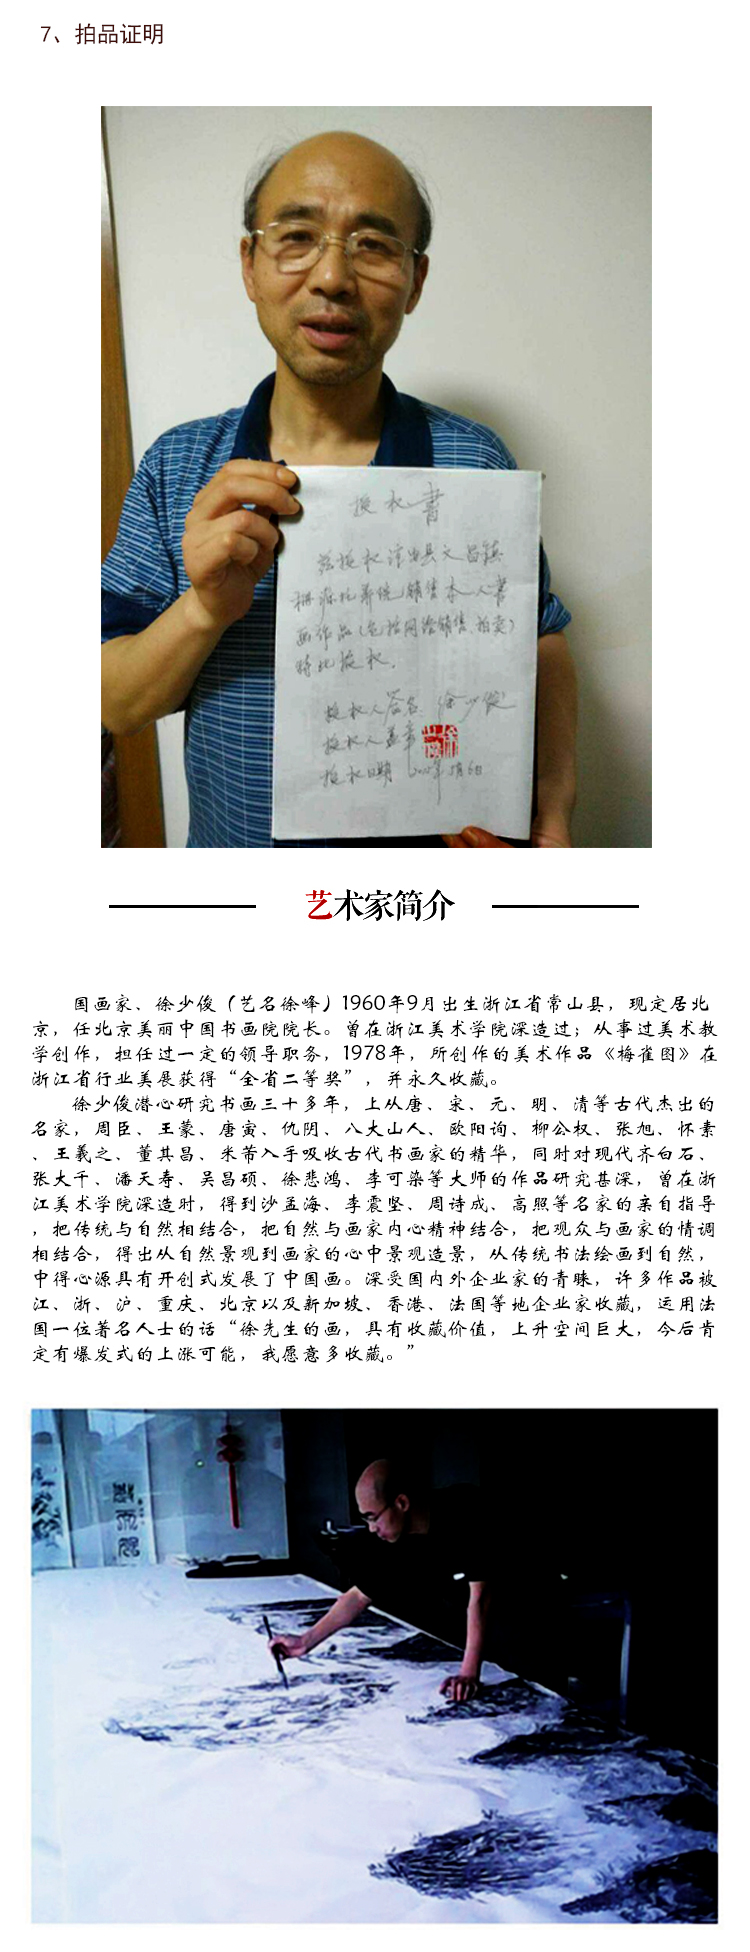 7、拍品证明
授权書
兹授权淳安县文昌镇
栅源托养院销售本人書
画作品(包括网络销售、拍卖)
特此授权.
授权人签名. 徐少俊
授权人盖章
授权日期 2015年5月6日
艺术家简介
国画家、徐少俊（艺名徐峰）1960年9月出生浙江省常山县，现定居北
京，任北京美丽中国书画院院长。曾在浙江美术学院深造过；从事过美术教
学创作，担任过一定的领导职务，1978年，所创作的美术作品《梅雀图》在
浙江省行业美展获得“全省二等奖”，并永久收藏。
徐少俊潜心研究书画三十多年，上从唐、宋、元、明、清等古代杰出的
名家，周臣、王蒙、唐寅、仇阴、八大山人、欧阳询、柳公权、张旭、怀素
、王羲之、董其昌、米芾入手吸收古代书画家的精华，同时对现代齐白石、
张大千、潘天寿、吴昌硕、徐悲鸿、李可染等大师的作品研究甚深，曾在浙
江美术学院深造时，得到沙孟海、李震坚、周诗成、高照等名家的亲自指导
，把传统与自然相结合，把自然与画家内心精神结合，把观众与画家的情调
相结合，得出从自然景观到画家的心中景观造景，从传统书法绘画到自然，
中得心源具有开创式发展了中国画。深受国内外企业家的青睐，许多作品被
江、浙、沪、重庆、北京以及新加坡、香港、法国等地企业家收藏，运用法
国一位著名人士的话“徐先生的画，具有收藏价值，上升空间巨大，今后肯
定有爆发式的上涨可能，我愿意多收藏。”